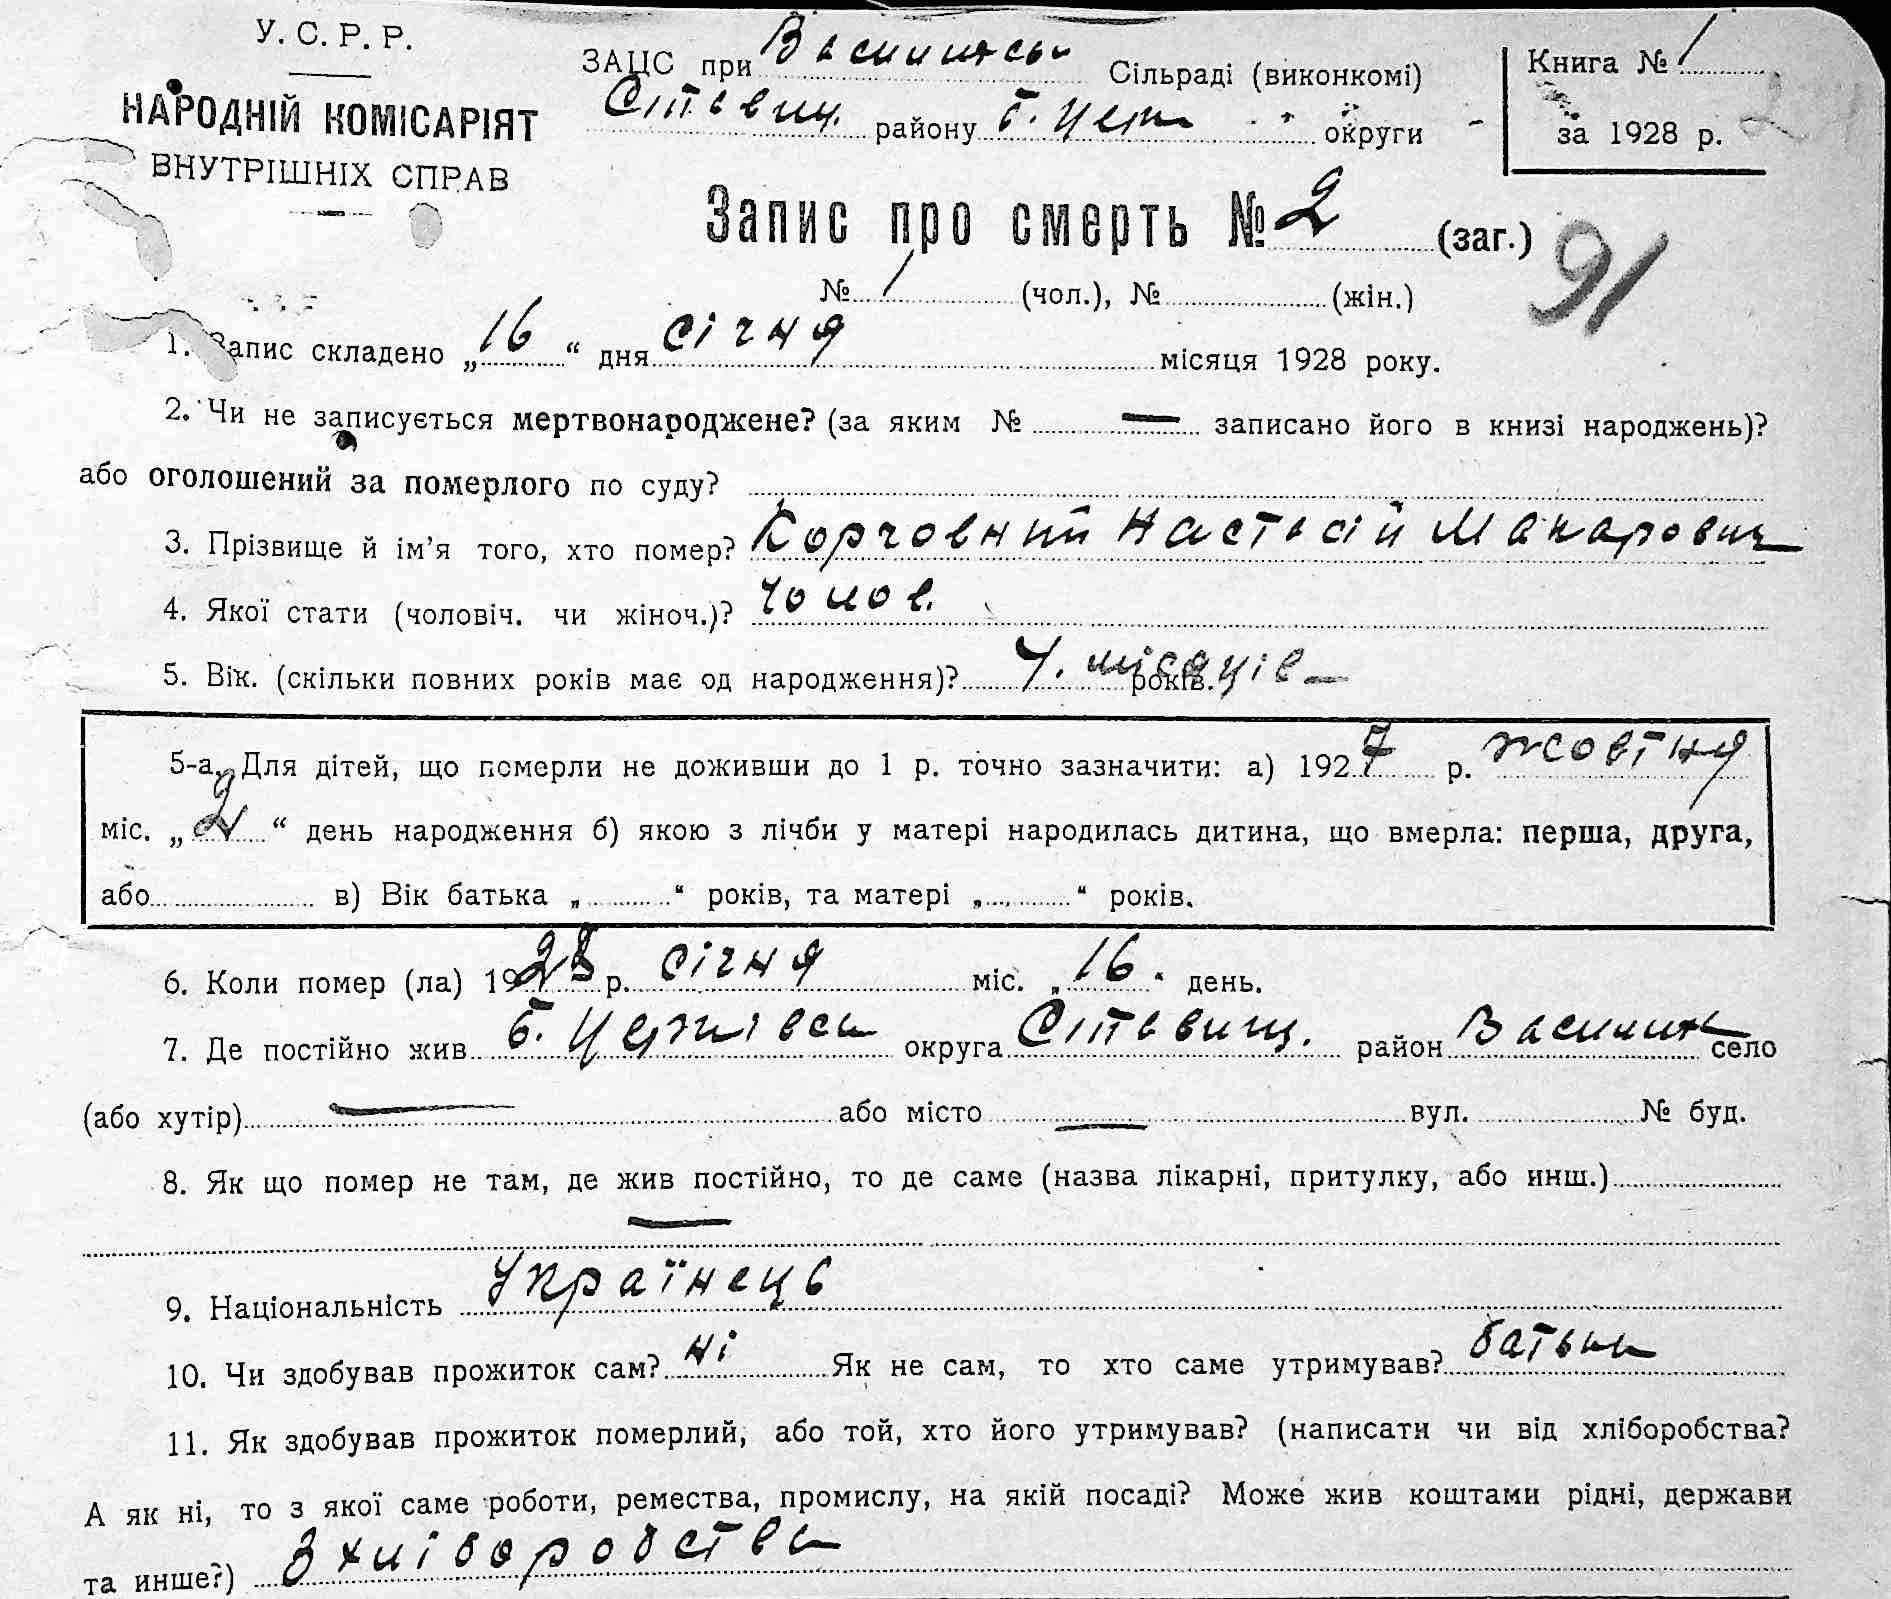 У. С. Р. Р.
НАРОДНІЙ КОМІСАРІЯТ
ВНУТРІШНІХ СПРАВ
ЗАЦС при Василихсь Сільраді (виконкомі)
Ставищ. району Б. Церк округи
Книга № 1
за 1928 р.
Запис про смерть № 2 (заг.)
91
№ 1 (чол.), № (жін.)
1. Запис складено „16“ дня січня місяця 1928 року.
2. Чи не записується мертвонароджене? (за яким № — записано його в книзі народжень)?
або оголошений за померлого по суду?
3. Прізвище й ім’я того, хто помер? Корчовний Настасій Макарович
4. Якої стати (чоловіч. чи жіноч.)? Чолов.
5. Вік. (скільки повних років має од народження)? 4. місяців років.
5-а. Для дітей, що померли не доживши до 1 р. точно зазначити: а) 1927 р. жовтня
міс. „2“ день народження б) якою з лічби у матері народилась дитина, що вмерла: перша, друга,
або в) Вік батька „ “ років, та матері „ “ років.
6. Коли помер (ла) 1928 р. січня міс. „16“ день.
7. Де постійно жив Б. Церківсь округа Ставищ. район село
(або хутір) — або місто — вул. № буд.
8. Як що помер не там, де жив постійно, то де саме (назва лікарні, притулку, або инш.)
—
9. Національність Українець
10. Чи здобував прожиток сам? ні Як не сам, то хто саме утримував? батьки
11. Як здобував прожиток померлий, або той, хто його утримував? (написати чи від хліборобства?
А як ні, то з якої саме роботи, ремества, промислу, на якій посаді? Може жив коштами рідні, держави
та инше?) З хліборобства